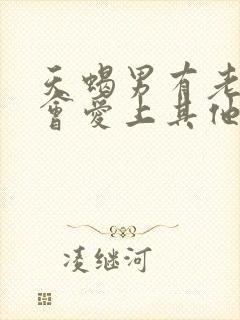 天蝎男有老
會愛上其他
凌继河